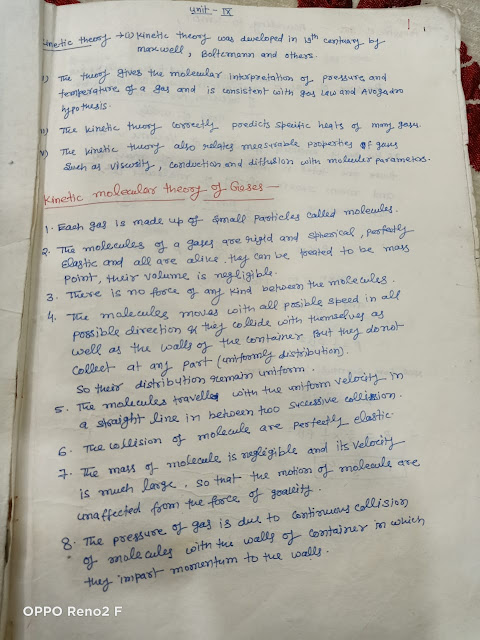 unit - IX
1
Kinetic theory → (i) Kinetic theory was developed in 19th century by
maxwell, Boltzmann and others.
The theory gives the molecular interpretation of pressure and
temperature of a gas and is consistent with gas law and Avogadro
hypothesis.
The kinetic theory correctly predicts specific heats of many gases.
The kinetic theory also relates measurable properties of gases
such as viscosity, conduction and diffusion with molecular parameters.
Kinetic molecular theory of Gases —
1. Each gas is made up of small particles called molecules.
2. The molecules of a gases are rigid and spherical, perfectly
Elastic and all are alive. they can be treated to be mass
point, their volume is negligible.
3. There is no force of any kind between the molecules.
4. The molecules moves with all posible speed in all
possible direction & they collide with themselves as
well as the walls of the container But they do not
collect at any part (uniformly distribution).
So their distribution remain uniform.
5. The molecules travelle with the uniform velocity in
a straight line in between two sucessive collision.
6. The collision of molecule are perfectly elastic.
7. The mass of molecule is negligible and its velocity
is much large. so that the motion of molecule are
unaffected from the force of gravity.
8. The pressure of gas is due to continuous collision
of molecules with the walls of container in which
they impart momentum to the walls.
OPPO Reno2 F